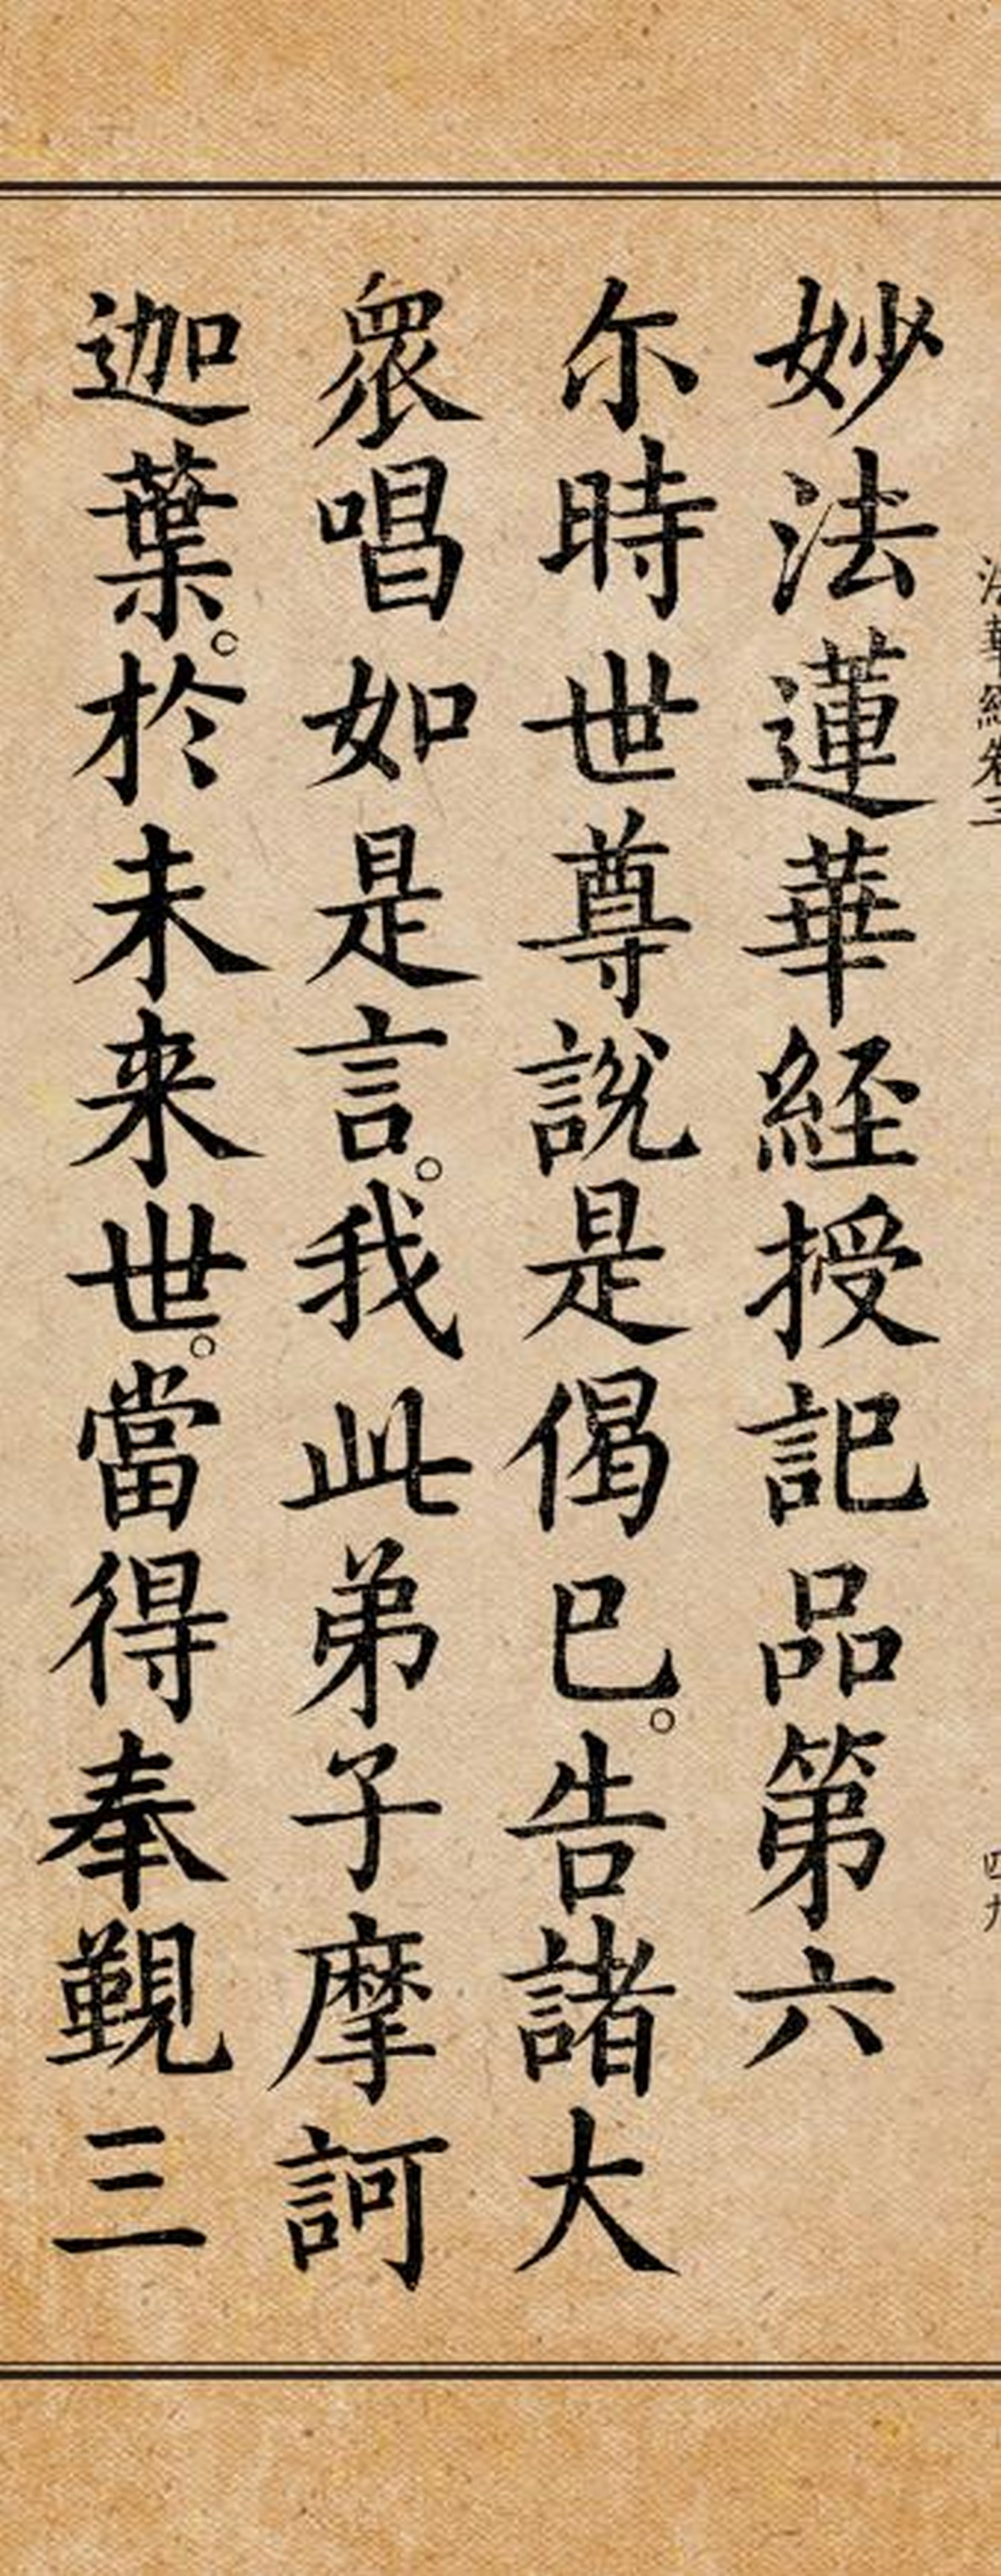 法華經卷三
四九
妙法蓮華経授記品第六
尓時世尊說是偈已。告諸大
眾唱如是言。我此弟子摩訶
迦葉。於未来世。當得奉覲三